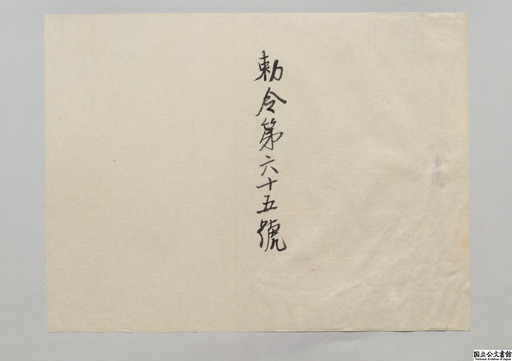 勅令第六十五號
国立公文書館
National Archives of Japan